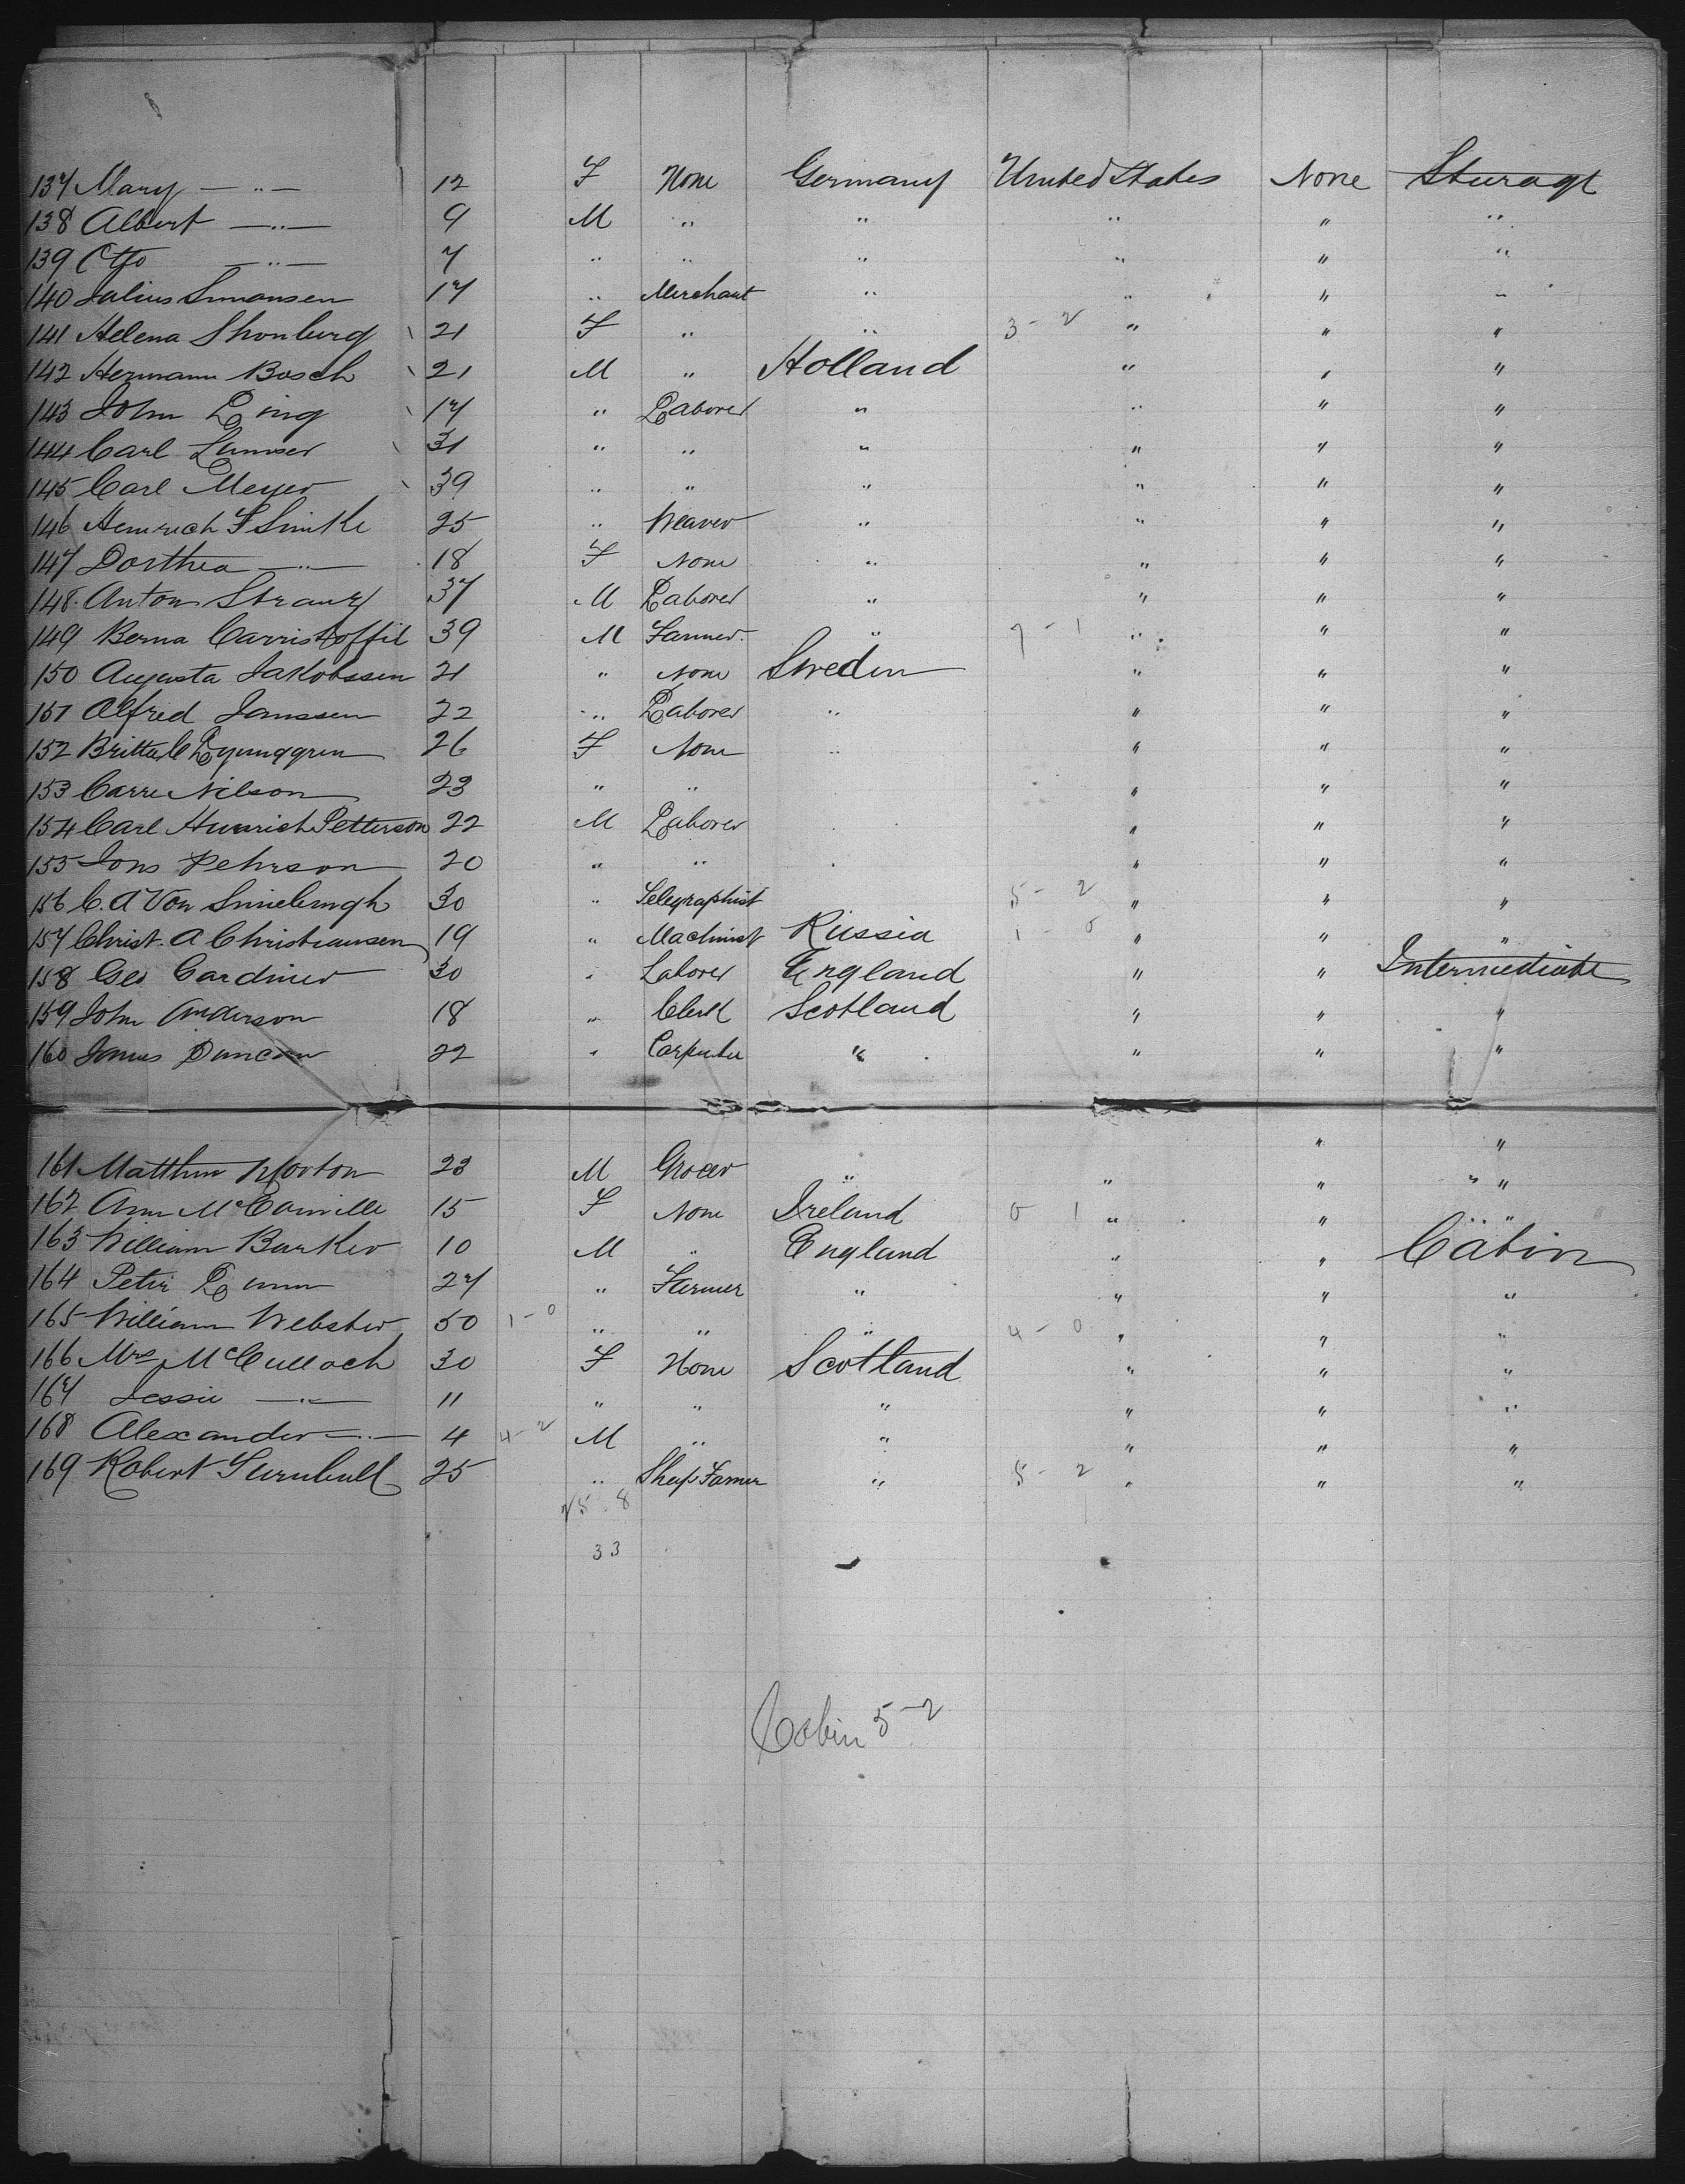 137 Mary — " — 12 F None Germany United States None Steragt
138 Albert — " — 9 M " " " " "
139 Otto — " — 7 " " " " " "
140 Julius Simonsen 17 " Merchant " " " "
141 Helena Shonburg 21 F " " 3 - 2 " " "
142 Hermann Bosch 21 M " Holland " " "
143 John Ling 17 " Laborer " " " "
144 Carl 31 " " " " " "
145 Carl Meyer 39 " " " " " "
146 Heinrich F Sinke 25 " Weaver " " " "
147 Dorthea — " — 18 F None " " " "
148 Anton Stranz 37 M Laborer " " " "
149 Berna Carristoffil 39 M Farmer " 7 - 1 " " "
150 Augusta Jakobssen 21 " None Sweden " " "
151 Alfred Janssen 22 " Laborer " " " "
152 Britta C Lyunggren 26 F None " " " "
153 Carre Nilson 23 " " " " "
154 Carl Heinrich Petterson 22 M Laborer " " "
155 Jons Pehrson 20 " " " " "
156 C. A Von 30 " Telegraphist 5 - 2 " " "
157 Christ. A Christiansen 19 " Machinist Russia 1 - 0 " " "
158 Geo Cardiner 30 " Laborer England " " Intermediate
159 John Anderson 18 " Clerk Scotland " " "
160 James Duncan 22 " Carpenter " " " "
161 Matthew Morton 23 M Grocer " " " "
162 Ann McConville 15 F None Ireland 0 1 " " "
163 William Barker 10 M " England " " Cabin
164 Peter Lunn 27 " Farmer " " " "
165 William Webster 50 1 - 0 " " " 4 - 0 " " "
166 Mrs McCulloch 30 F None Scotland " " "
167 Jessie — " — 11 " " " " " "
168 Alexander — " — 4 4 - 2 M " " " " "
169 Robert Turnbull 25 " Sheep Farmer " 5 - 2 " " "
25 - 8
33
Cabin 5 - 2